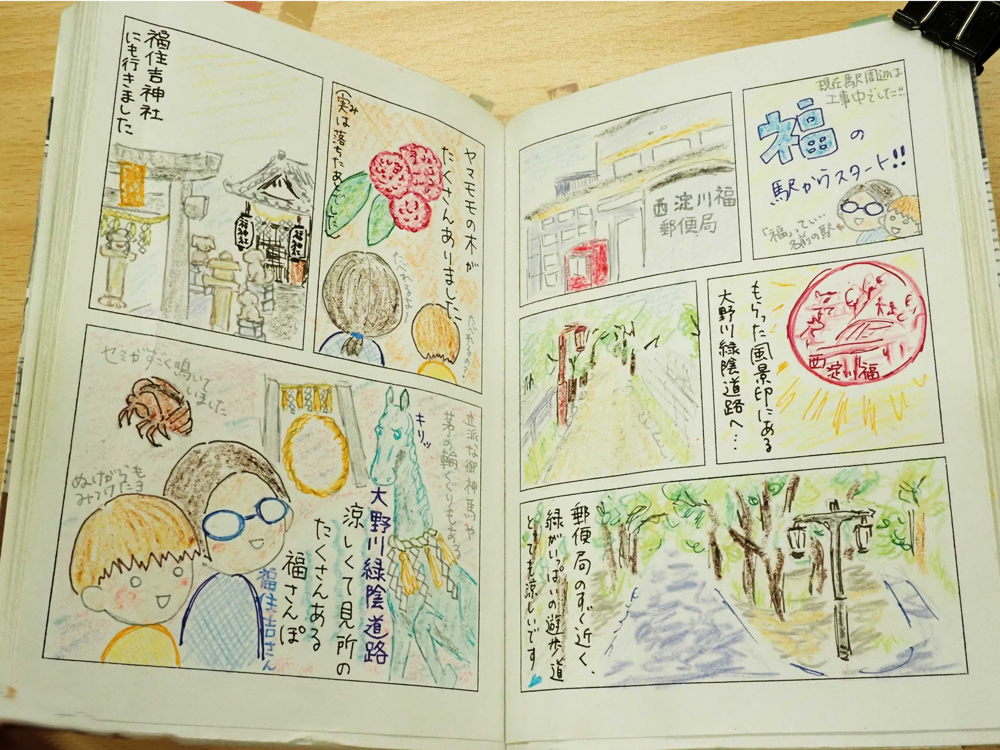 現在駅周辺は
工事中でした!!
福の
駅からスタート!!
「福」ってい
名前の駅
西淀川福
郵便局
もらった風景印にある
大野川緑陰道路へ…
西淀川福
郵便局のすぐ近く、
緑がいっぱいの遊歩道
とても涼しいです
ヤマモモの木が
たくさんありました。
(実は落ちたあとでした)
み
福住吉神社
にも行きました
福神社
セミがすごく鳴いて
いました
ぬけがらも
みつけたよ
キリッ
立派な御神馬や
茅の輪くぐりもある
福住吉さん
大野川緑陰道路
涼しくて見所の
たくさんある
福さんぽ